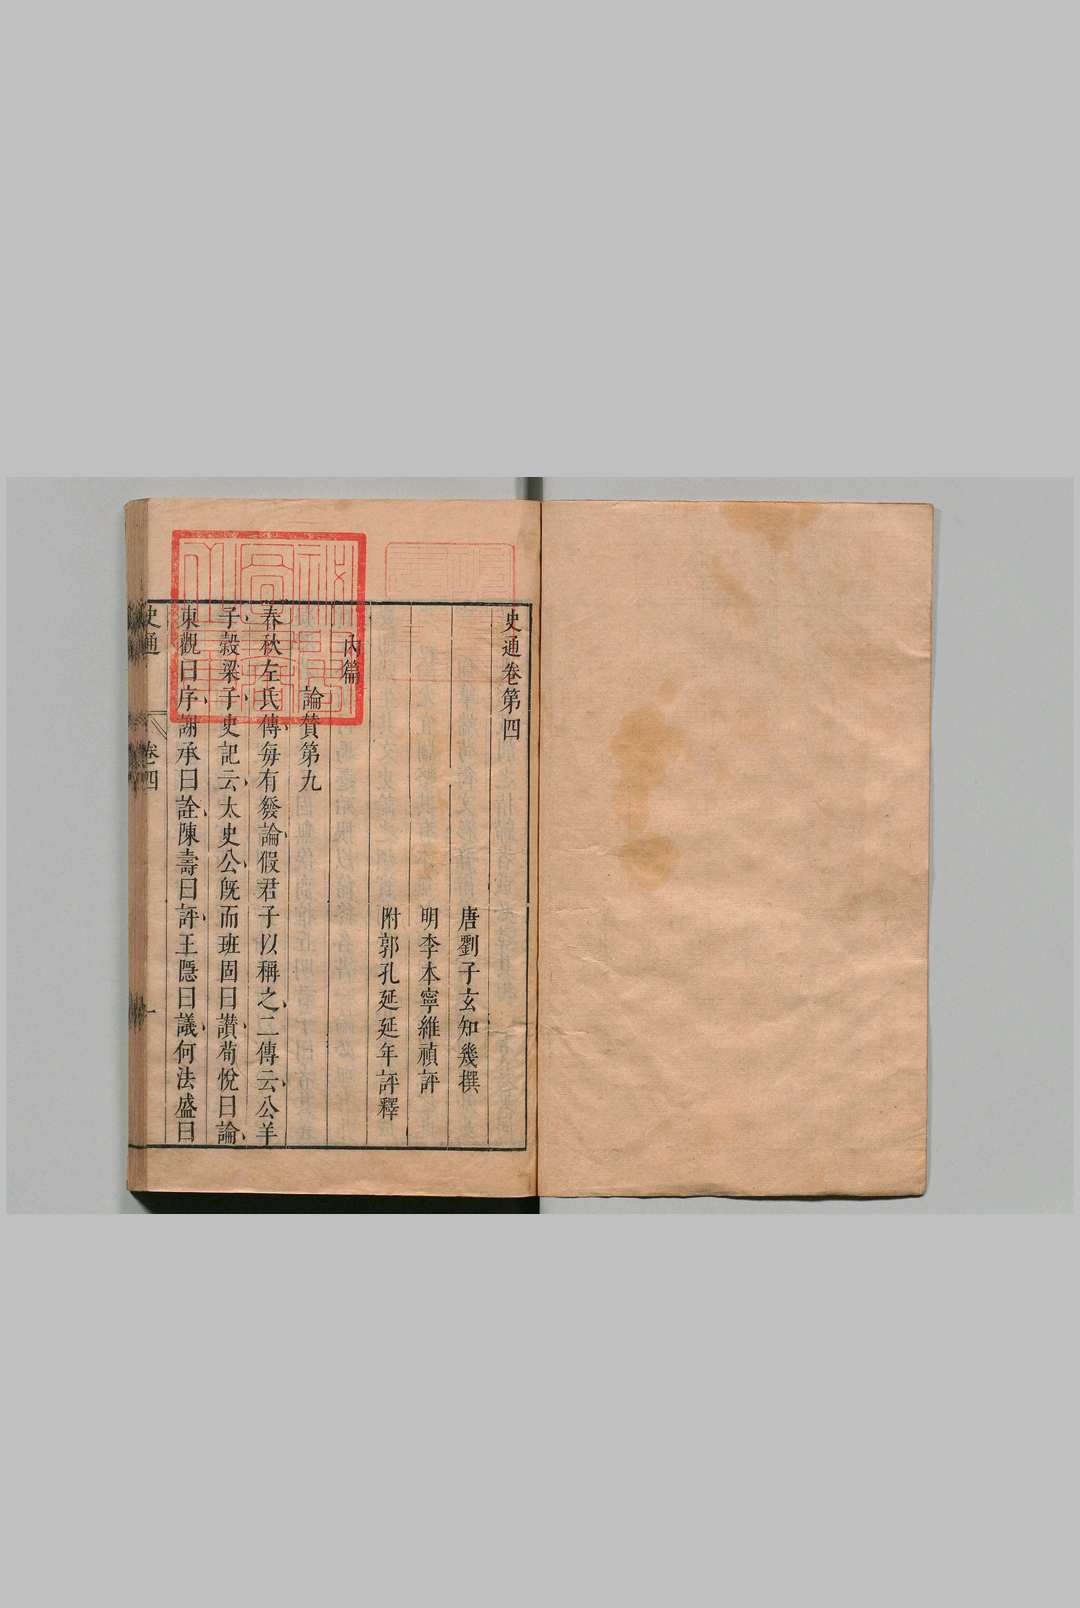 史通卷第四
唐劉子玄知幾撰
明李本寧維禎評
附郭孔延延年評釋
內篇
論贊第九
春秋左氏傳每有發論假君子以稱之二傳云公羊
子穀梁子史記云太史公旣而班固曰讚荀悅曰論
東觀曰序謝承曰詮陳壽曰評王隱曰議何法盛曰
史通
卷四
一